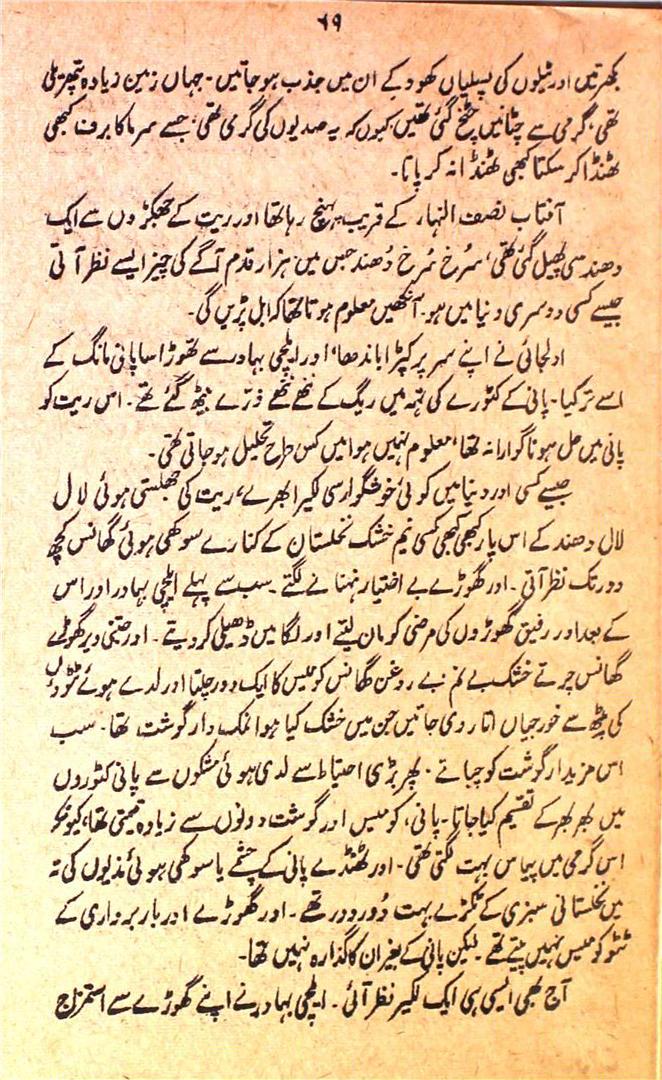 ۶۹
بکھرتیں اور ٹیلوں کی پسلیاں کھود کے ان میں جذب ہو جاتیں۔ جہاں زمین زیادہ پتھریلی
تھی، گرمی سے چٹانیں چٹخ گئی تھیں کیوں کہ یہ صدیوں کی گرمی تھی، جسے سرما کا برف کبھی
ٹھنڈا کر سکتا کبھی ٹھنڈا نہ کر پاتا۔
آفتاب نصف النہار کے قریب پہنچ رہا تھا اور ریت کے جھکڑوں سے ایک
دھند سی پھیل گئی تھی، سُرخ سُرخ دُھند جس میں ہزار قدم آگے کی چیز ایسے نظر آتی
جیسے کسی دوسری دنیا میں ہو۔ آنکھیں معلوم ہوتا تھا کہ ابل پڑیں گی۔
اولجائی نے اپنے سر پر کپڑا باندھا، اور ایلچی بہادر سے تھوڑا سا پانی مانگ کے
اسے تر کیا۔ پانی کے کٹورے کی تہہ میں ریگ کے ننھے ننھے ذرّے بیٹھ گئے تھے۔ اس ریت کو
پانی میں حل ہونا گوارا نہ تھا، معلوم نہیں ہوا میں کس طرح تحلیل ہو جاتی تھی۔
جیسے کسی اور دنیا میں کوئی خوشگوار سی لکیر ابھرے، ریت کی جھلستی ہوئی لال
لال دھند کے اس پار کبھی کبھی کسی نیم خشک نخلستان کے کنارے سوکھی ہوئی گھانس کچھ
دور تک نظر آتی۔ اور گھوڑے بے اختیار ہنہنانے لگتے۔ سب سے پہلے ایلچی بہادر اور اس
کے بعد اور رفیق گھوڑوں کی مرضی کو مان لیتے اور لگامیں ڈھیلی کر دیتے۔ اور جتنی دیر گھوڑے
گھانس چرتے خشک بے نم بے روغن گھانس کو میس کا ایک دور چلتا اور لدے ہوئے ٹٹوؤں
کی پیٹھ سے خورجیاں اتار دی جاتیں جن میں خشک کیا ہوا نمک دار گوشت تھا۔ سب
اس مزیدار گوشت کو چباتے۔ پھر بڑی احتیاط سے لدی ہوئی مشکوں سے پانی کٹوروں
میں بھر بھر کے تقسیم کیا جاتا۔ پانی، کومیس اور گوشت دونوں سے زیادہ قیمتی تھا، کیونکہ
اس گرمی میں پیاس بہت لگتی تھی۔ اور ٹھنڈے پانی کے چشمے یا سوکھی ہوئی ندیوں کی تہ
میں نخلستانی سبزی کے ٹکڑے بہت دُور دور تھے۔ اور گھوڑے اور باربرداری کے
ٹٹو کومیس نہیں پیتے تھے۔ لیکن پانی کے بغیر ان کا گذارہ نہیں تھا۔
آج بھی ایسی ہی ایک لکیر نظر آئی۔ ایلچی بہادر نے اپنے گھوڑے سے استمزاج